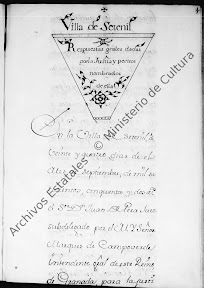 Villa de Setenil
Respuestas grãles dadas
por la Justicia y peritos
nombrados
de ella
En la Villa de Setenil a
Veinte y quatro dias de el
Mes de Septiembre, de mil se
cinquenta y dos
el Sr. Dn Juan de
subdelegado por el Señor
Marques de Campoverde
Intendente gral de este Reino
de Granada para la
Archivos Estatales © Ministerio de Cultura